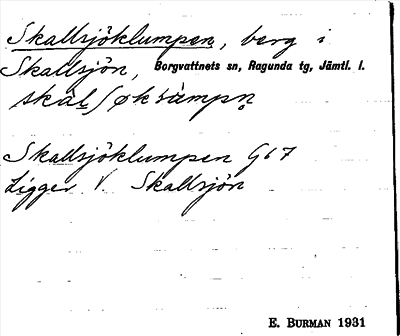 Skallsjöklumpen, berg i
Skallsjön, Borgvattnets sn, Ragunda tg, Jämtl. l.
Skallsjöklumpen G67
Ligger V. Skallsjön
E. BURMAN 1931